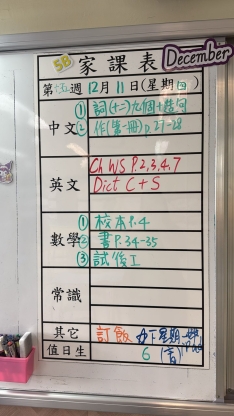 5B 家課表 December
第十五週 12月11日(星期四)
中文 ① 詞(十二)九個+造句
② 作(第一冊) p.27-28
英文 Ch WS P.2,3,4,7
Dict C+S
數學 ① 校本 P.4
② 書 P.34-35
③ 試後工
常識
其它 訂飯 下星期一
值日生 6